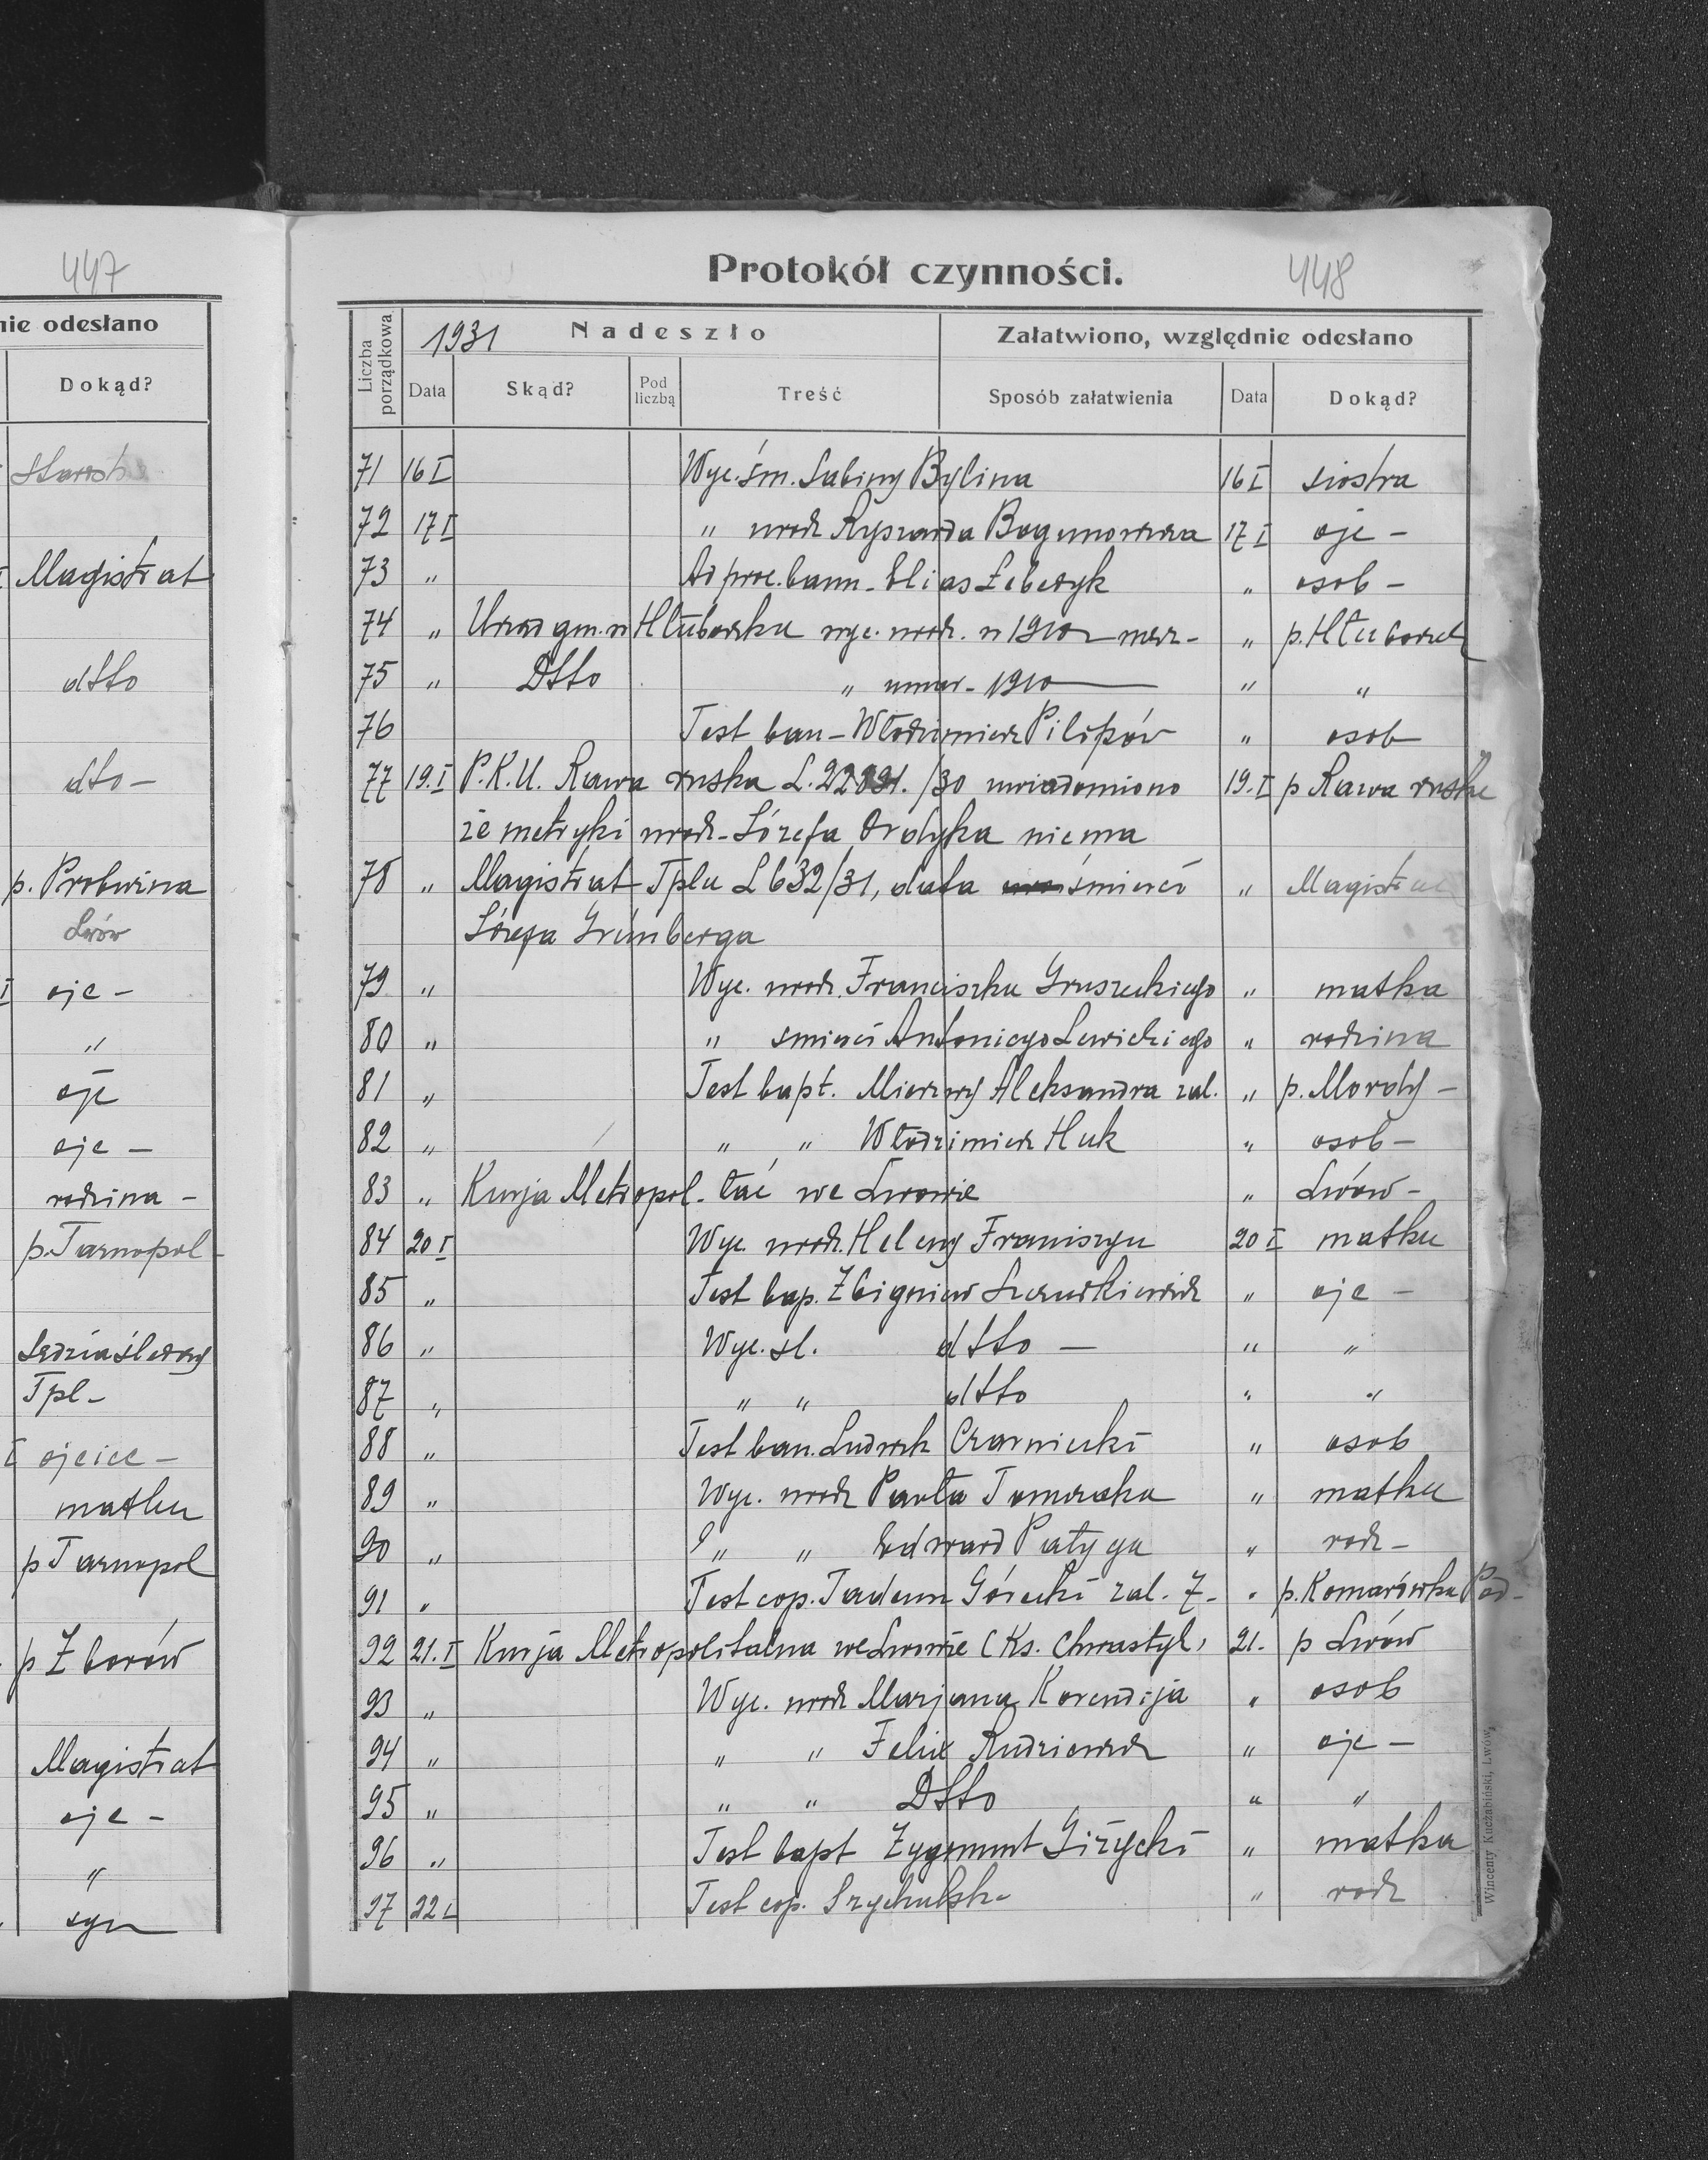 447
nie odesłano
Dokąd?
Magistrat
dtto
dto -
p. Probużna
Lwów
ojc -
"
ojc
ojc -
rodzina -
p. Tarnopol -
Sędzia śledczy
Tpl -
ojciec -
matka
p Tarnopol
p Zborów
Magistrat
ojc -
"
syn
Protokół czynności. 448
Liczba porządkowa 1931 Nadeszło Załatwiono, względnie odesłano
Data Skąd? Pod liczbą Treść Sposób załatwienia Data Dokąd?
71 16 I Wyc. śm. Sabiny Bylina 16 I siostra
72 17 I " urodz Ryszarda 17 I ojc -
73 " Ad proc. bann. Elias " osob -
74 " Urząd gm. w Hłuboczku wyc. urodz. w 1910 " p. Hłuboczek
75 " Dtto " umar - 1910 " "
76 Test ban - Włodzimierz Pilipów " osob
77 19. I P. K. U. Rawa ruska L. /30 uwiadomiono 19. I p Rawa ruska
że metryki urodz - Józefa Ordyka niema
78 " Magistrat Tplu L 632/31, data śmierci " Magistrat
Józefa Grünberga
79 " Wyc. urodz. Franciszka Gruszeckiego " matka
80 " " śmierci Antoniego Lewickiego " rodzina
81 " Test bapt. Aleksandra zal. " p. Mordy -
82 " " " Włodzimierz Huk " osob -
83 " Kurja Metropol. łać we Lwowie " Lwów -
84 20 I Wyc. urodz. Heleny 20 I matka
85 " Test bap. Zbigniew " ojc -
86 " Wyc. sl. dtto — " "
87 " " " dtto " "
88 " Test ban. Ludwik Czarniecki " osob
89 " Wyc. urodz Pawła Tomczaka " matka
90 " " " Edward Patyga " rodz -
91 " Test cop. Tadeusz Górecki zal. 7 - " p. Komarówka Pod -
92 21. I Kurja Metropolitalna we Lwowie (Ks. Chwastyk) 21. p Lwów
93 " Wyc. urodz Marjana Korendija " osob
94 " " " Felix Rudziewicz " ojc -
95 " " " Dtto " "
96 " Test bapt Zygmunt Giżycki " matka
97 22 I Test cop. " rodz
Wincenty Kuczabiński, Lwów,